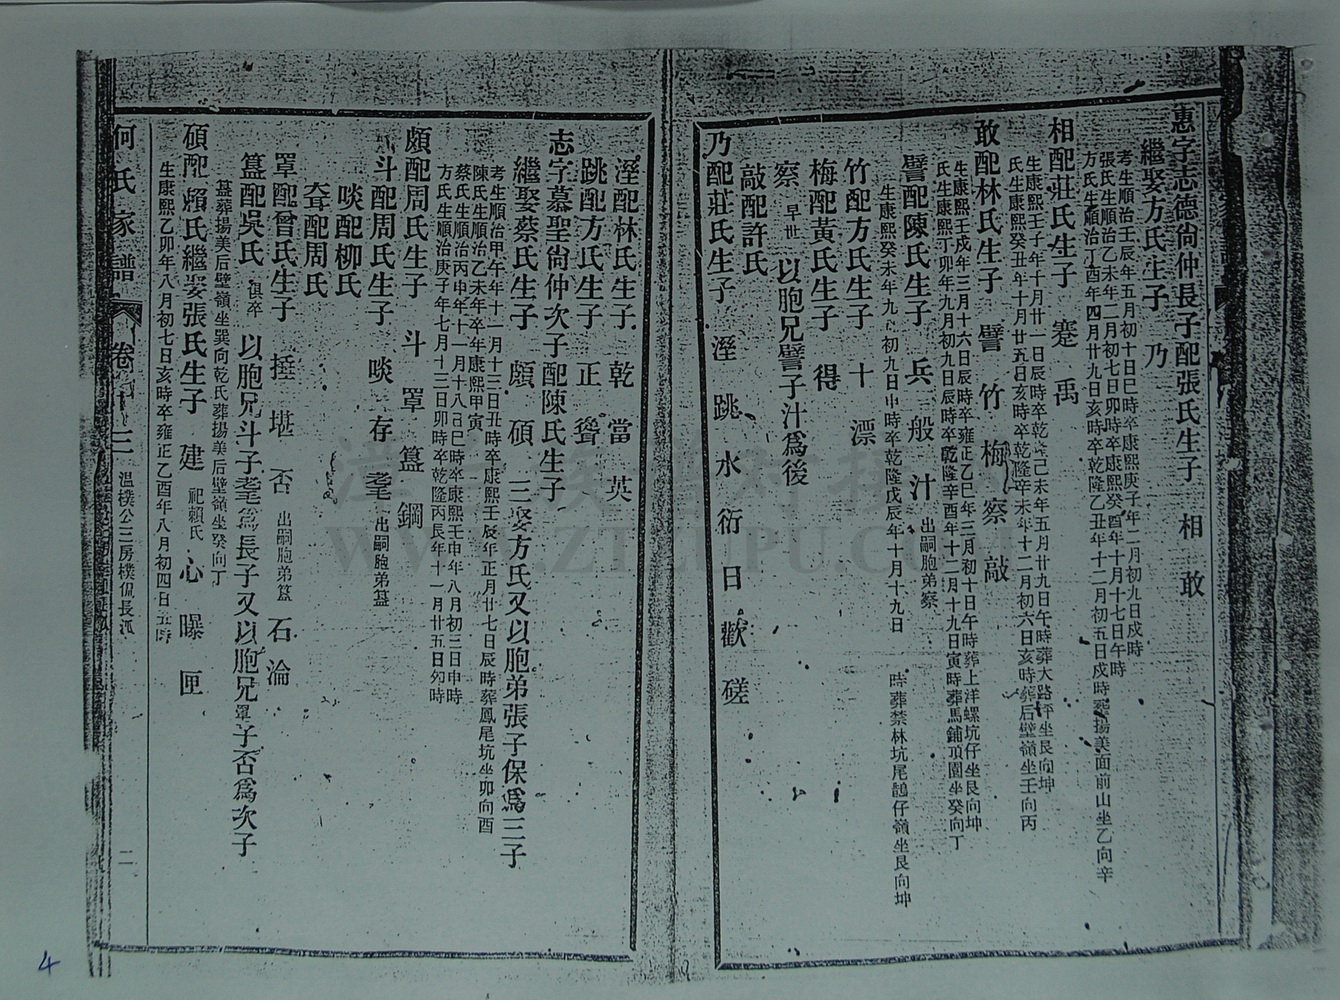 惠字志德尙仲長子配張氏生子 相 敢
繼娶方氏生子 乃
考生順治壬辰年五月初十日巳時卒康熙庚子年二月初九日戌時
張氏生順治乙未年二月初七日卯時卒康熙癸酉年十月十七日午時
方氏生順治丁酉年四月廿九日亥時卒乾隆乙丑年十二月初五日戌時葬揚美面前山坐乙向辛
相配莊氏生子 蹇 禹
生康熙壬子年十月廿一日辰時卒乾隆己未年五月廿九日午時葬大路坪坐艮向坤
氏生康熙癸丑年十月廿五日亥時卒乾隆辛未年十二月初六日亥時葬后壁嶺坐壬向丙
敢配林氏生子 譬 竹 梅 察 敲
生康熙壬戌年三月十六日辰時卒雍正乙巳年三月初十日午時葬上洋螺坑仔坐艮向坤
氏生康熙丁卯年九月初九日辰時卒乾隆辛酉年十二月十九日寅時葬馬鋪項園坐癸向丁
譬配陳氏生子 兵 般 汁 出嗣胞弟察
生康熙癸未年九月初九日申時卒乾隆戊辰年十月十九日 時葬禁林坑尾鷂仔嶺坐艮向坤
竹配方氏生子 十 漂
梅配黃氏生子 得
察 早世 以胞兄譬子汁爲後
敲配許氏
乃配莊氏生子 溼 跳 水 衍 日 歡 磋
溼配林氏生子 乾 當 英
跳配方氏生子 正 聳
志字慕聖尙仲次子配陳氏生子
繼娶蔡氏生子 頗 碩 三娶方氏又以胞弟張子保爲三子
考生順治甲午年十一月十三日丑時卒康熙壬辰年正月廿七日辰時葬鳳尾坑坐卯向酉
陳氏生順治乙未年卒康熙甲寅
蔡氏生順治丙申年十一月十八日巳時卒康熙壬申年八月初三日申時
方氏生順治庚子年七月十三日卯時卒乾隆丙辰年十一月廿五日卯時
頗配周氏生子 斗 罩 簋 鋼
斗配周氏生子 啖 存 耋 出嗣胞弟簋
啖配柳氏
耷配周氏
罩配曾氏生子 挳 堪 否 出嗣胞弟簋 石 淪
簋配吳氏 俱卒 以胞兄斗子耋爲長子又以胞兄罩子否爲次子
簋葬揚美后壁嶺坐巽向乾氏葬揚美后壁嶺坐癸向丁
碩配賴氏繼娶張氏生子 建 祀賴氏 心 曝 匣
生康熙乙卯年八月初七日亥時卒雍正乙酉年八月初四日丑時
何氏家譜 卷 三 溫樸公三房樸侃長派 二
4
WWW.ZTZUPU.COM